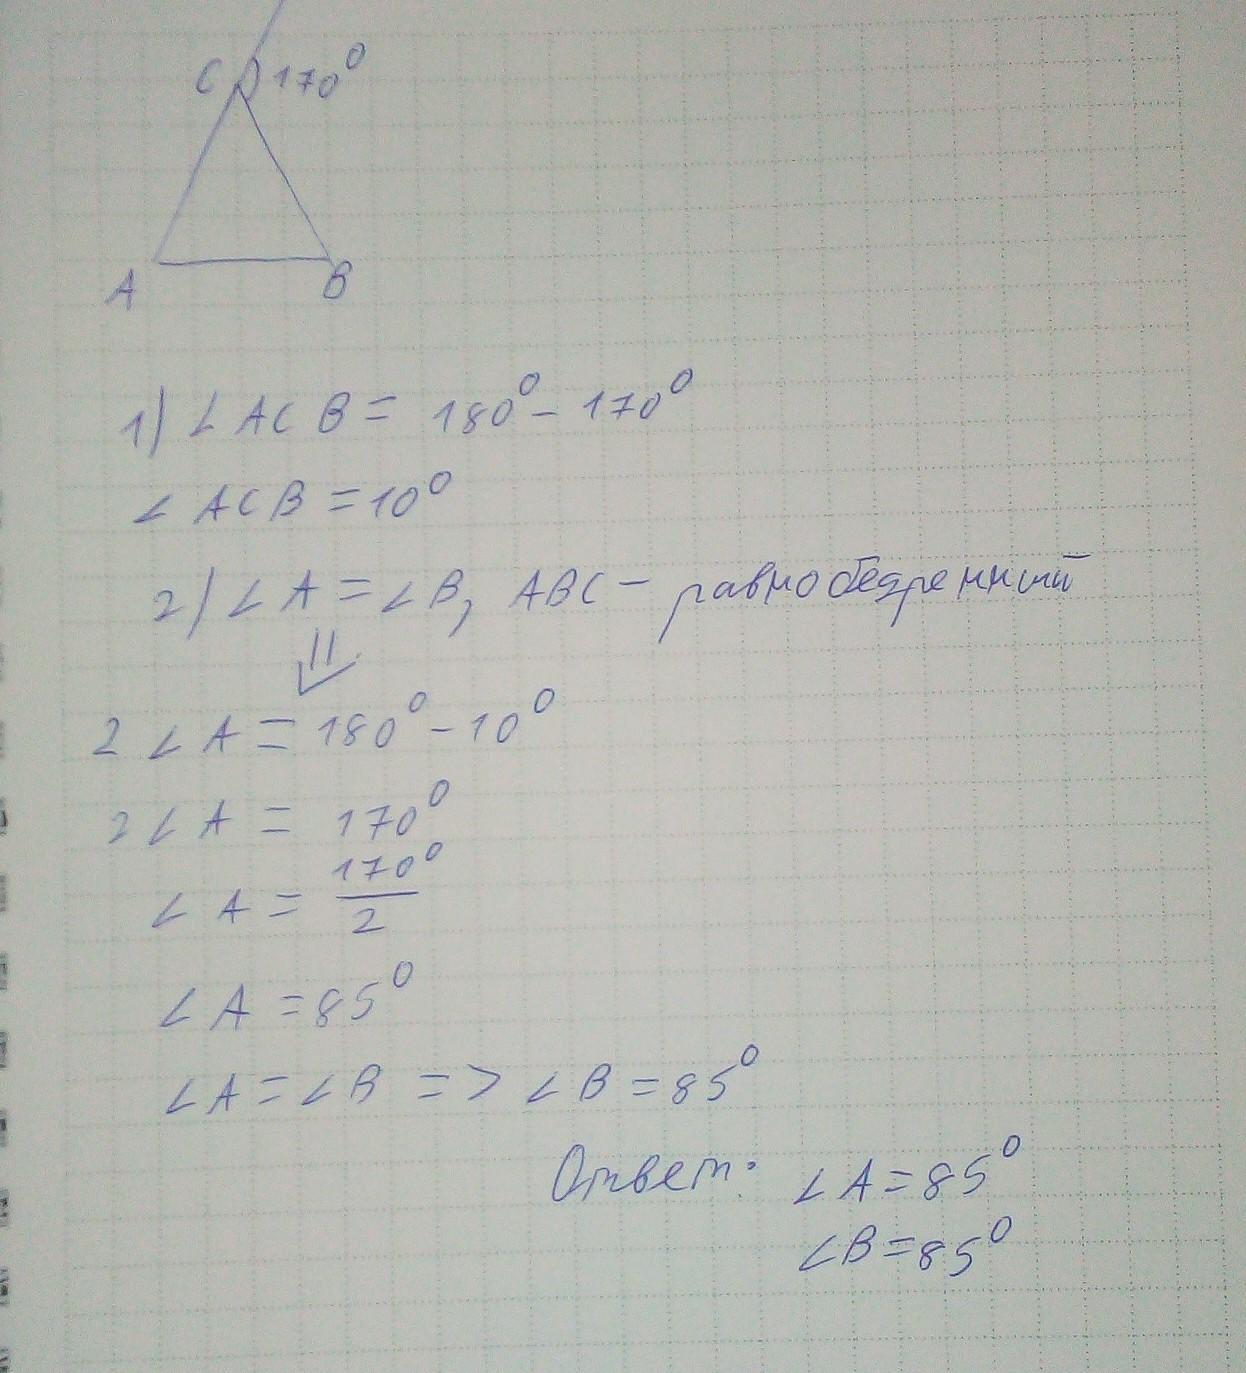 C 170°
A B
1) ∠ACB = 180° - 170°
∠ACB = 10°
2) ∠A = ∠B, ABC - равнобедренный
⇓
2∠A = 180° - 10°
2∠A = 170°
∠A = 170°/2
∠A = 85°
∠A = ∠B => ∠B = 85°
Ответ: ∠A = 85°
∠B = 85°